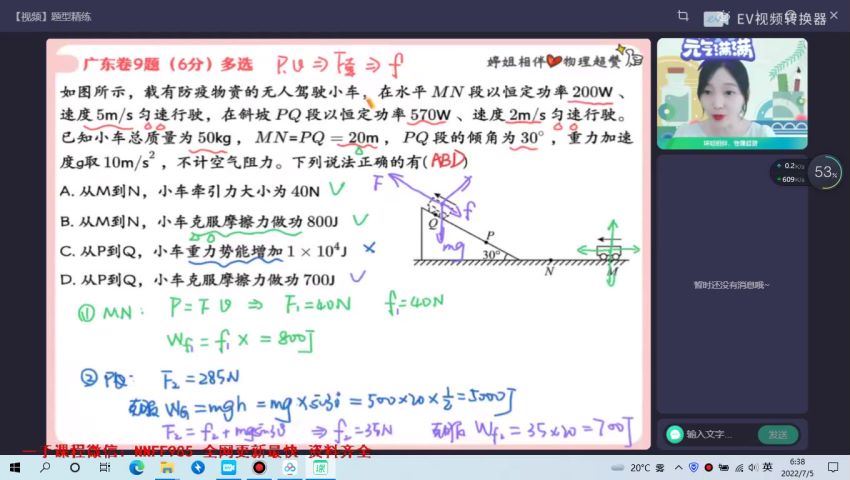 【视频】题型精练
EV视频转换器
广东卷9题（6分）多选 P.v ⇒ F牵 ⇒ f
婷姐相伴❤物理超赞
如图所示，载有防疫物资的无人驾驶小车，在水平MN段以恒定功率200W、
速度5m/s匀速行驶，在斜坡PQ段以恒定功率570W、速度2m/s匀速行驶。
已知小车总质量为50kg，MN=PQ=20m，PQ段的倾角为30°，重力加速
度g取10m/s²，不计空气阻力。下列说法正确的有(ABD)
A. 从M到N，小车牵引力大小为40N
B. 从M到N，小车克服摩擦力做功800J
C. 从P到Q，小车重力势能增加1×10⁴J
D. 从P到Q，小车克服摩擦力做功700J
F
f
Q
mg
P
30°
N
M
① MN: P=Fv ⇒ F₁=40N f₁=40N
Wf₁=f₁x=800J
② PQ: F₂=285N
克服 WG=mgh=mg×sin30°=500×20×½=5000J
F₂=f₂+mgsin30° ⇒ f₂=35N 克服 Wf₂=35×20=700J
元气满满
暂时还没有消息哦~
0.2K/s
609K/s
53%
输入文字...
发送
一手课程微信：NNFF985 全网更新最快 资料齐全
20°C 雾
英
6:38
2022/7/5